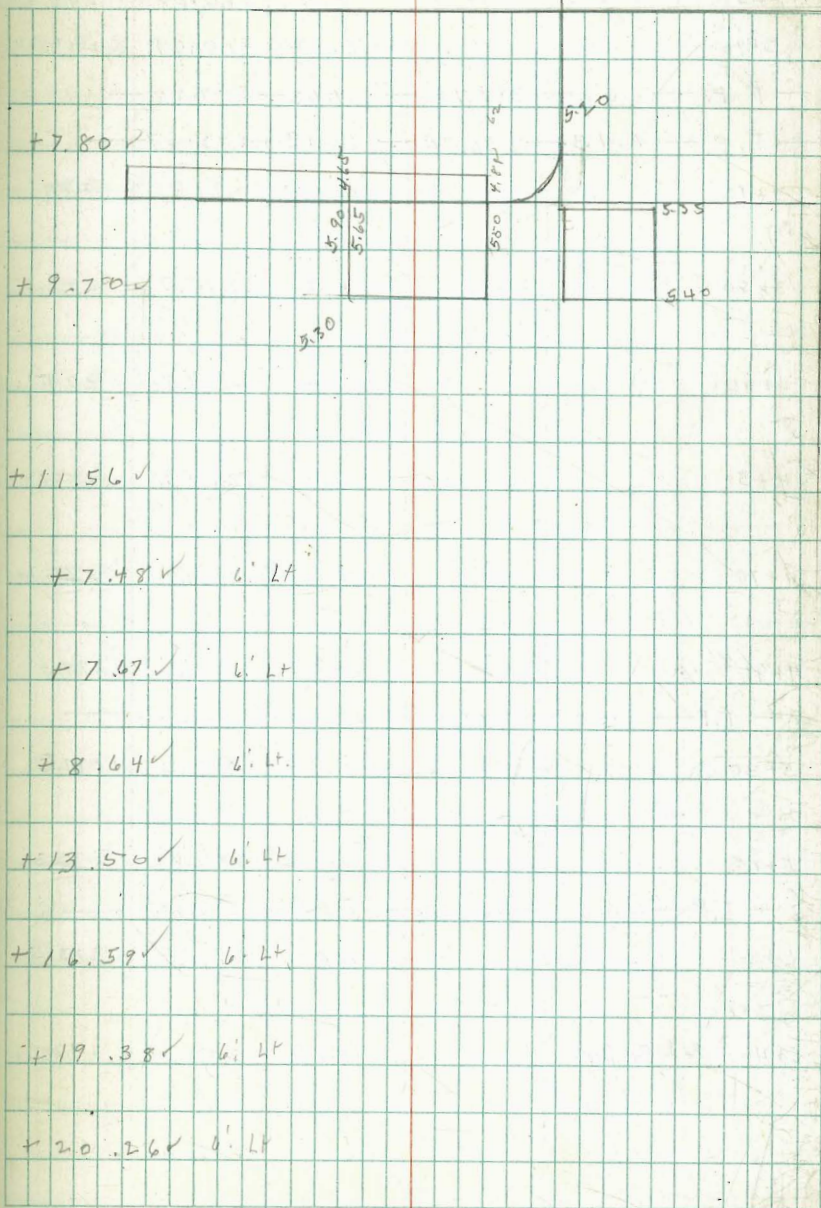 5.20
+7.80 ✓
4.65
5.35
5.90
5.65
5.50
+9.70 ✓
5.40
5.30
+11.56 ✓
+7.48 ✓ 6' Lt
+7.67 ✓ 6' Lt
+8.64 ✓ 6' Lt.
+13.50 ✓ 6' Lt
+16.59 ✓ 6' Lt
+19.38 ✓ 6' Lt
+20.26 ✓ 6' Lt